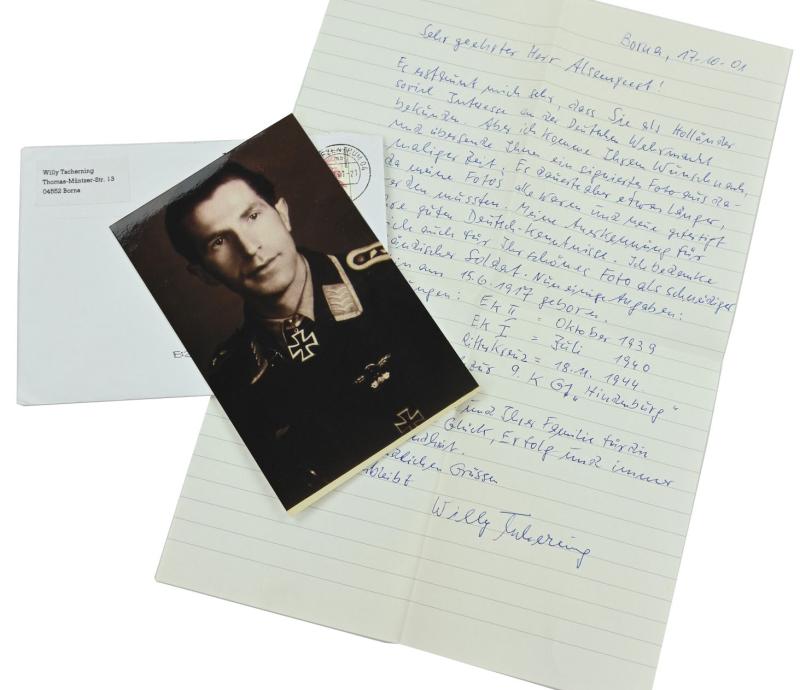 Willy Tscherning
Thomas-Müntzer-Str. 13
04552 Borna
ZENTRUM 04
Borna, 17.10.01
Sehr geehrter Herr Alsemgeest!
Es erstaunt mich sehr, dass Sie als Holländer
soviel Interesse an der Deutschen Wehrmacht
bekunden. Aber ich komme Ihrem Wunsch nach,
und übersende Ihnen ein signiertes Foto aus da-
maliger Zeit. Es dauert aber etwas länger,
da meine Fotos alle waren und neue gefertigt
werden mussten. Meine Anerkennung für
guten Deutsch-Kenntnisse. Ich bedanke
mich auch für Ihr schönes Foto als schneidiger
ländischer Soldat. Nun einige Angaben:
in am 15.6.1917 geboren.
ungen: EK II = Oktober 1939
EK I = Juli 1940
Ritterkreuz = 18.11.1944
für 9 K Gr. "Hindenburg"
und Ihrer Familie fürhin
Glück, Erfolg und immer
undheit.
zlichen Grüssen
bleibt
Willy Tscherning